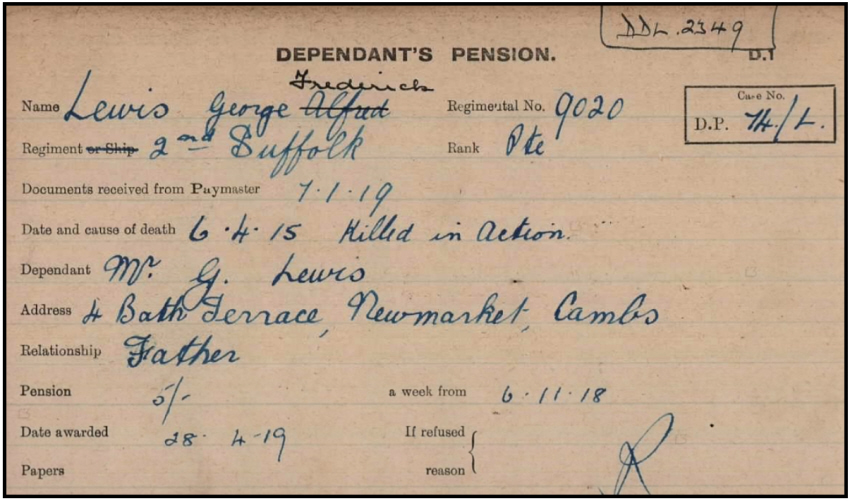 DDL.2349
DEPENDANT'S PENSION.
D.1
Frederick
Name Lewis George Alfred Regimental No. 9020
Case No.
D.P. 74/L.
Regiment or Ship 2nd Suffolk Rank Pte
Documents received from Paymaster 7.1.19
Date and cause of death 6.4.15 Killed in Action.
Dependant Mr. G. Lewis
Address 4 Bath Terrace, Newmarket, Cambs
Relationship Father
Pension 5/- a week from 6.11.18
Date awarded 28. 4-19 If refused
Papers reason